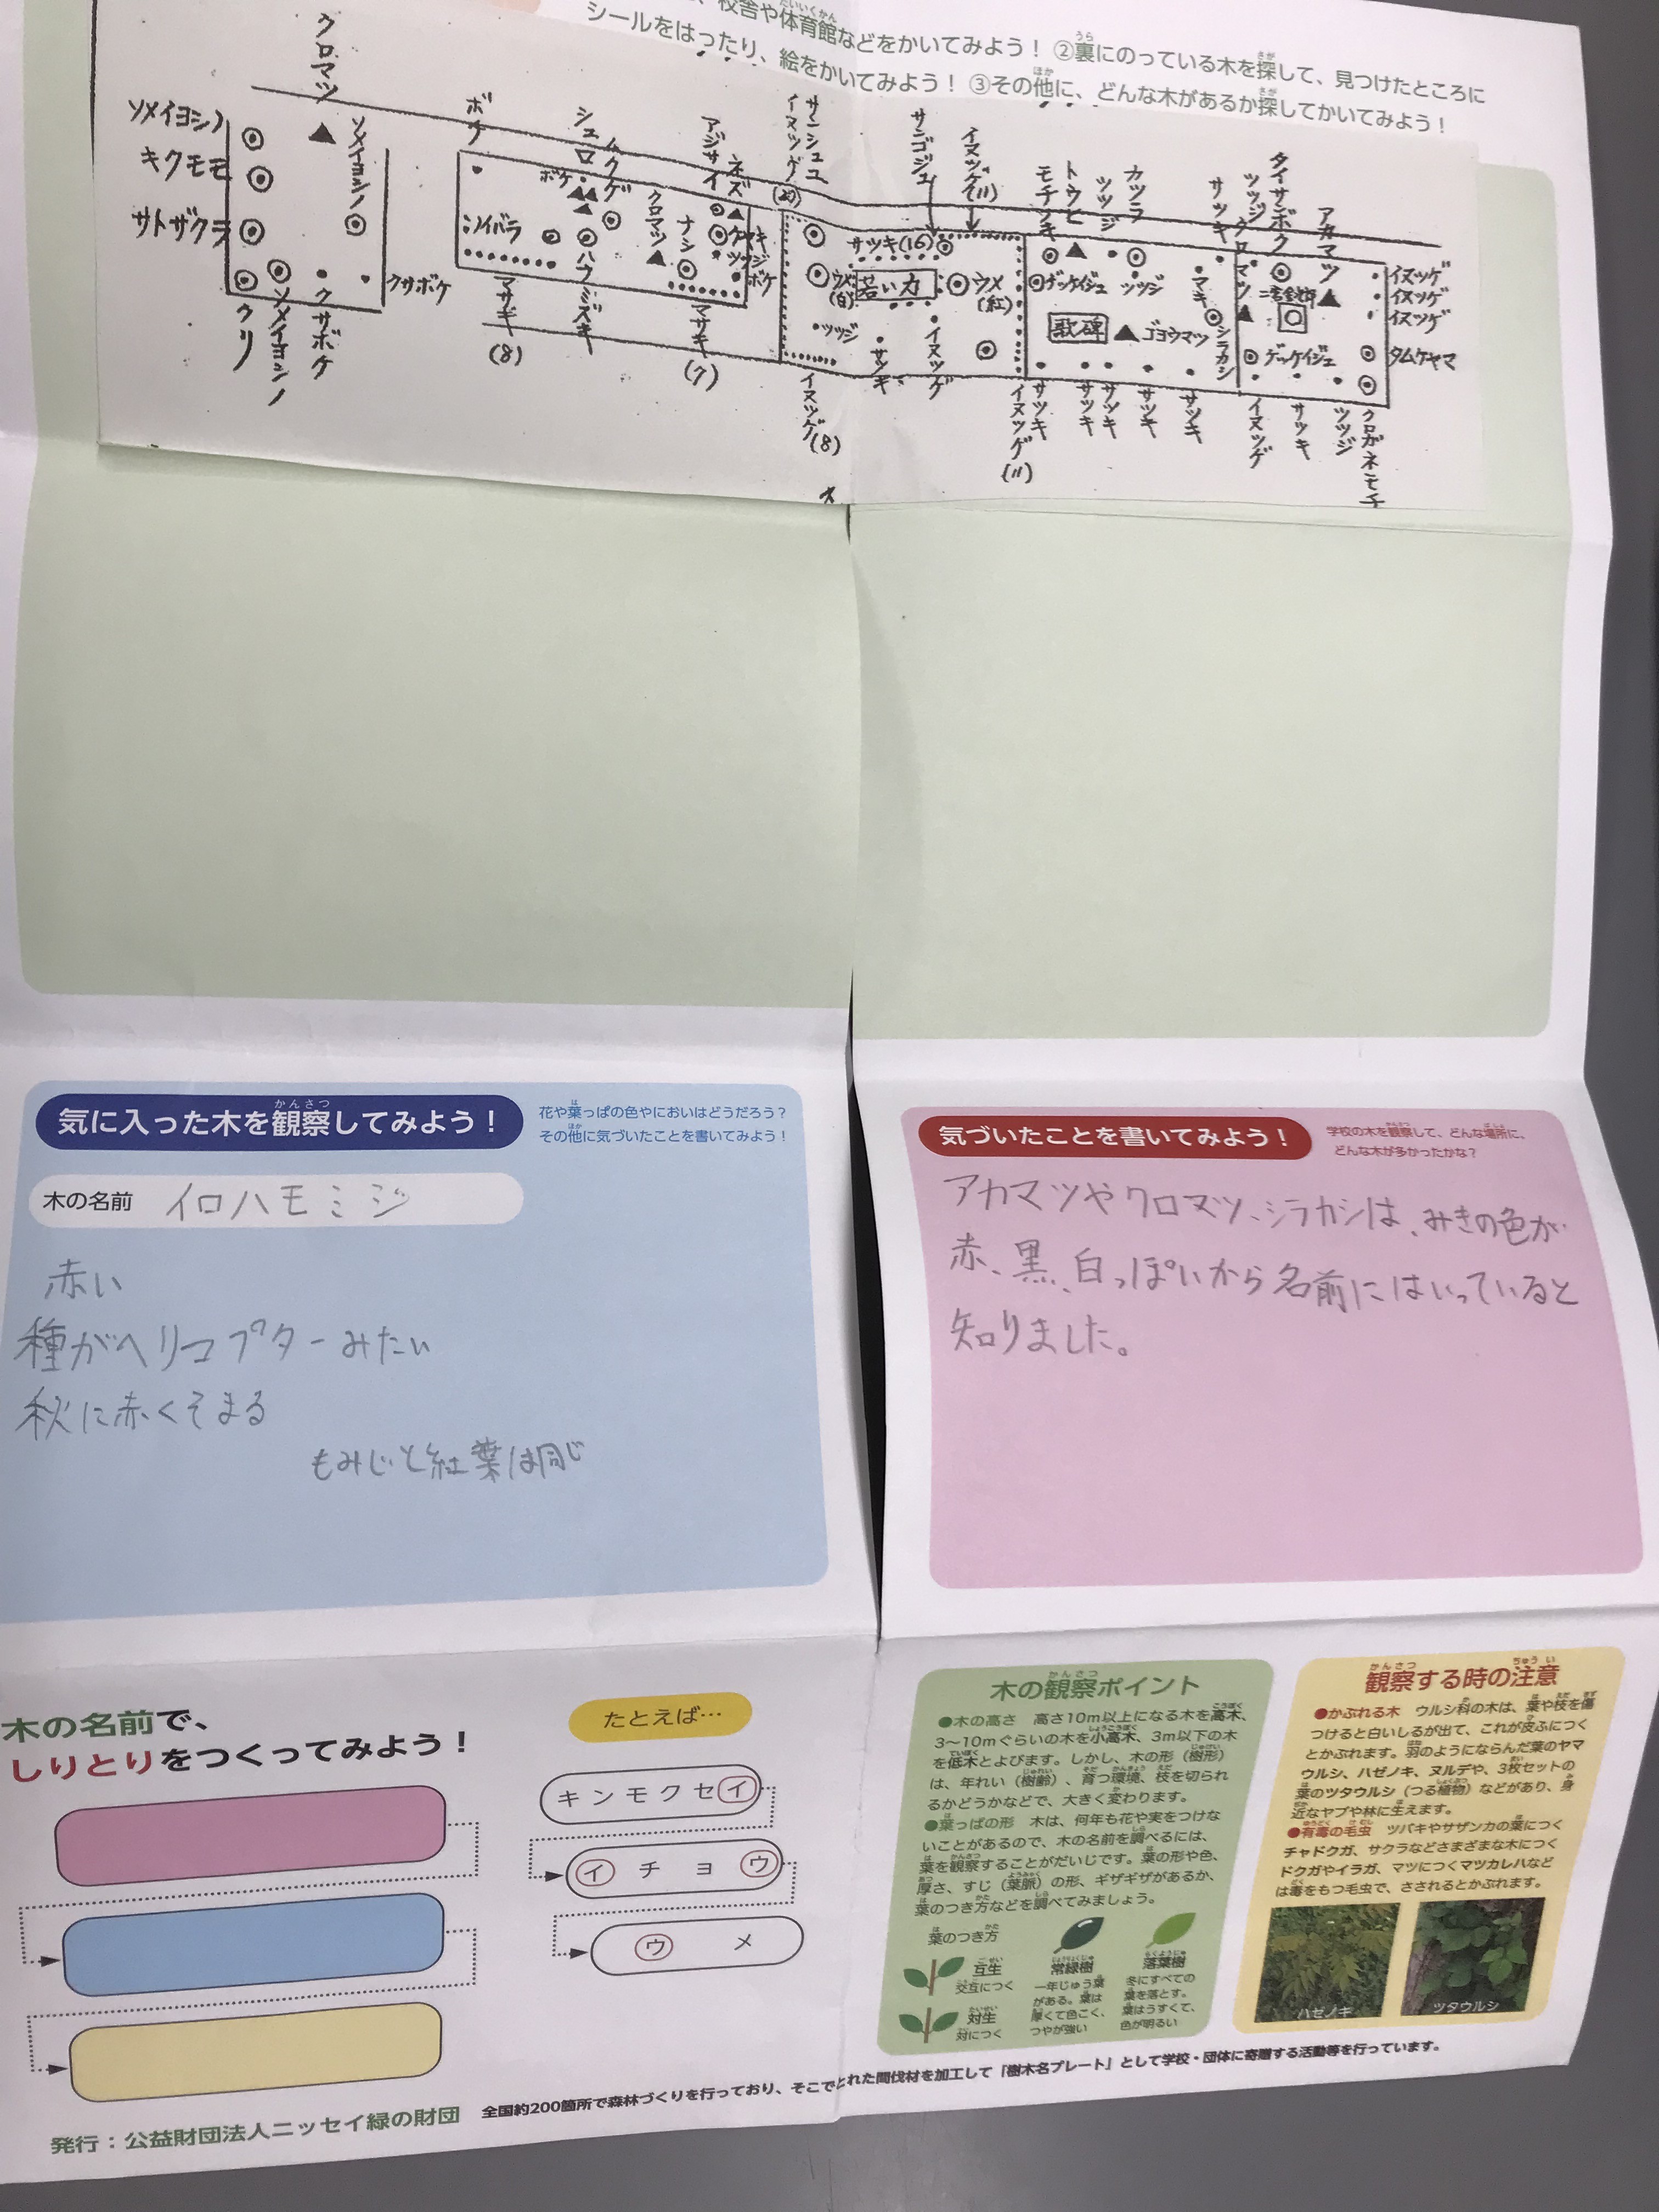 校舎や体育館などをかいてみよう！ ②裏にのっている木を探して、見つけたところに
シールをはったり、絵をかいてみよう！ ③その他に、どんな木があるか探してかいてみよう！
クロマツ
ソメイヨシノ
キクモモ
サトザクラ
ソメイヨシノ
クリ
ソメイヨシノ
クサボケ
クサボケ
ボケ
シュロ
ムクゲ
アジサイ
ネズ
ボケ
クロマツ
ナシ
ノイバラ
ハナミズキ
ツツジ
ボケ
マサキ
(8)
マサキ
(7)
サンシュユ
イヌツゲ
(20)
サンゴジュ
イヌツゲ(11)
サツキ(16)
ウメ
(白)
若い力
ウメ
(紅)
ツツジ
サツキ
イヌツゲ
イヌツゲ(8)
イヌツゲ(11)
モチノキ
トウヒ
ツツジ
カツラ
サツキ
ゲッケイジュ
ツツジ
マキ
歌碑
ゴヨウマツ
シラカシ
サツキ
サツキ
サツキ
サツキ
サツキ
ツツジ
タイサンボク
アカマツ
クロマツ
イヌツゲ
イヌツゲ
イヌツゲ
ゲッケイジュ
タムケヤマ
イヌツゲ
サツキ
ツツジ
クロガネモチ
気に入った木を観察してみよう！
花や葉っぱの色やにおいはどうだろう？
その他に気づいたことを書いてみよう！
木の名前 イロハモミジ
赤い
種がヘリコプターみたい
秋に赤くそまる
もみじと紅葉は同じ
気づいたことを書いてみよう！
学校の木を観察して、どんな場所に、
どんな木が多かったかな？
アカマツやクロマツ、シラカシは、みきの色が
赤、黒、白っぽいから名前にはいっていると
知りました。
木の名前で、
しりとりをつくってみよう！
たとえば…
キンモクセイ
イチョウ
ウメ
木の観察ポイント
●木の高さ 高さ10m以上になる木を高木、
3〜10mぐらいの木を小高木、3m以下の木
を低木とよびます。しかし、木の形（樹形）
は、年れい（樹齢）、育つ環境、枝を切られ
るかどうかなどで、大きく変わります。
●葉っぱの形 木は、何年も花や実をつけな
いことがあるので、木の名前を調べるには、
葉を観察することがだいじです。葉の形や色、
厚さ、すじ（葉脈）の形、ギザギザがあるか、
葉のつき方などを調べてみましょう。
葉のつき方
互生
交互につく
対生
対につく
常緑樹
一年じゅう葉
がある。葉は
厚くて色こく、
つやが強い
落葉樹
冬にすべての
葉を落とす。
葉はうすくて、
色が明るい
観察する時の注意
●かぶれる木 ウルシ科の木は、葉や枝を傷
つけると白いしるが出て、これが皮ふにつく
とかぶれます。羽のようにならんだ葉のヤマ
ウルシ、ハゼノキ、ヌルデや、3枚セットの
葉のツタウルシ（つる植物）などがあり、身
近なヤブや林に生えます。
●有毒の毛虫 ツバキやサザンカの葉につく
チャドクガ、サクラなどさまざまな木につく
ドクガやイラガ、マツにつくマツカレハなど
は毒をもつ毛虫で、さされるとかぶれます。
ハゼノキ
ツタウルシ
発行：公益財団法人ニッセイ緑の財団 全国約200箇所で森林づくりを行っており、そこでとれた間伐材を加工して「樹木名プレート」として学校・団体に寄贈する活動等を行っています。